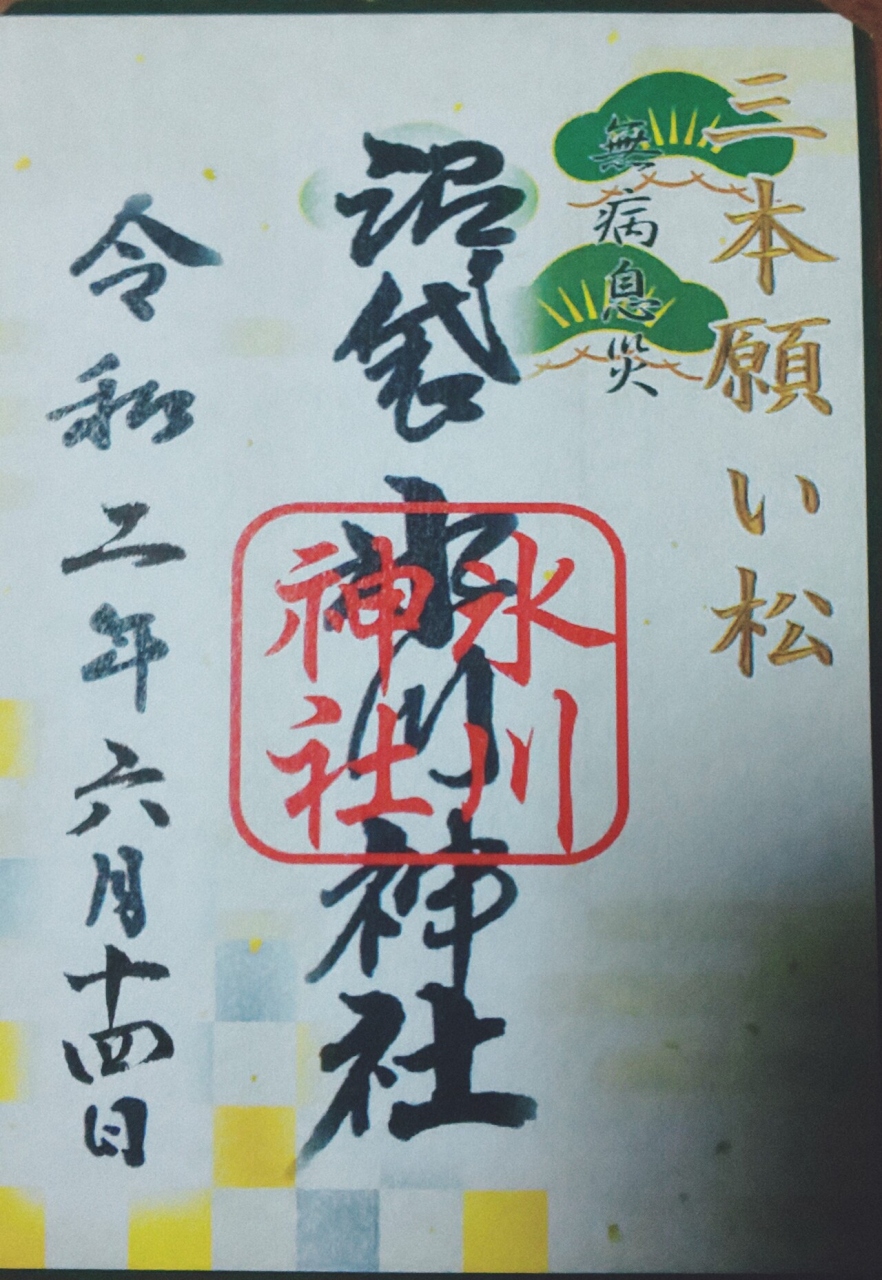 三本願い松
無病息災
沼袋氷川神社
氷川
神社
令和二年六月十四日